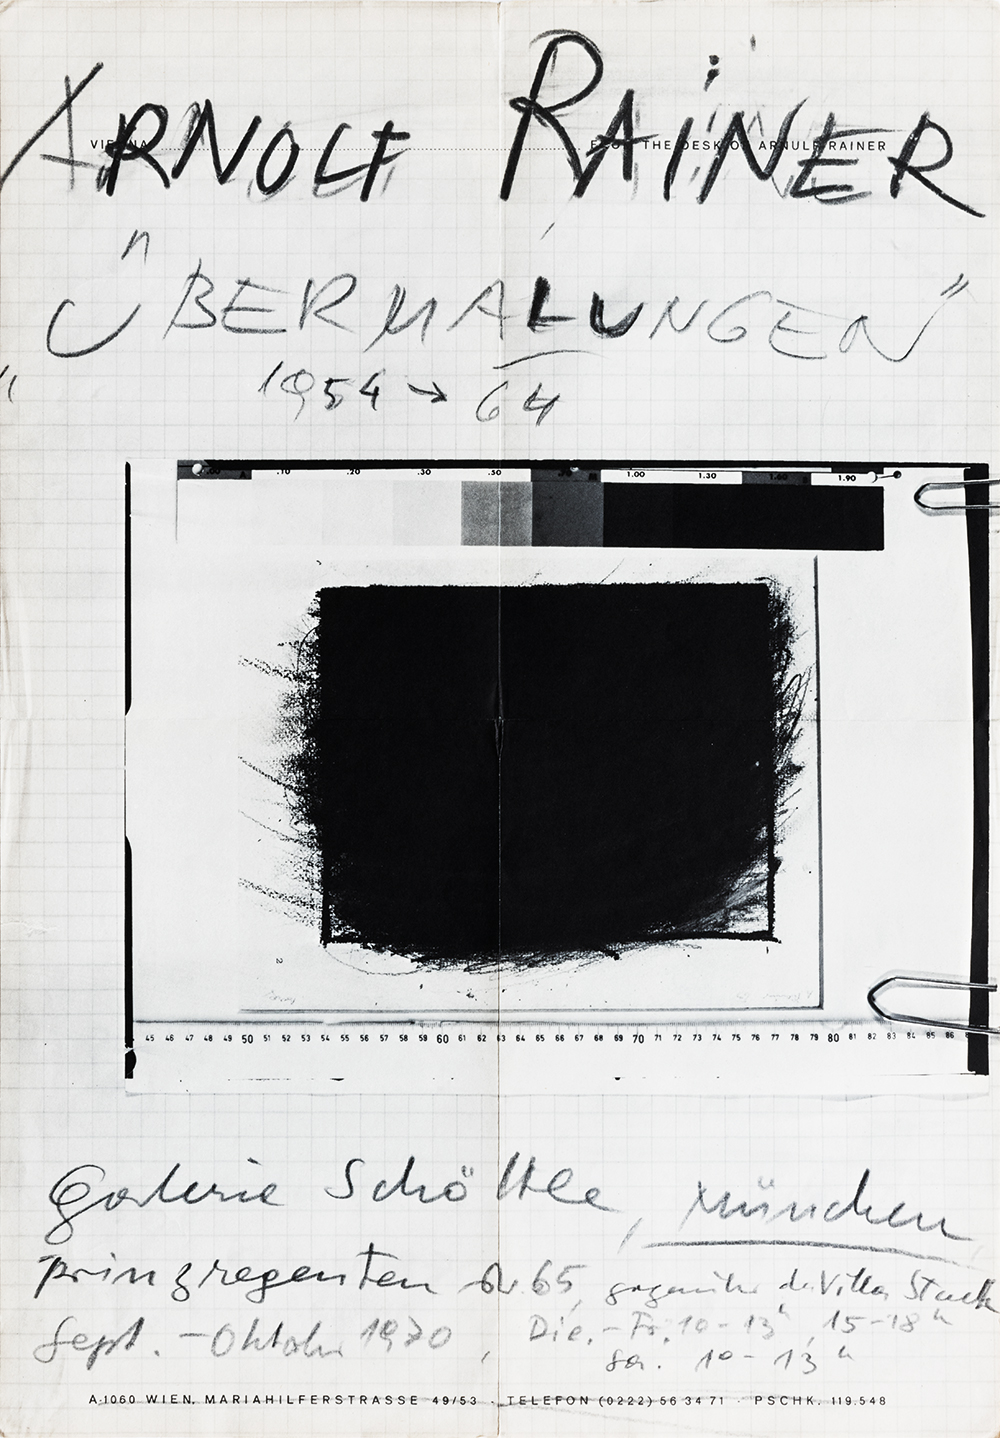 VIENNA FROM THE DESK OF ARNULF RAINER
ARNOLF RAINER
"ÜBERMALUNGEN"
1954 → 64
.00 A .10 .20 .30 .50 .70 M 1.00 1.30 1.60 1.90
2
45 46 47 48 49 50 51 52 53 54 55 56 57 58 59 60 61 62 63 64 65 66 67 68 69 70 71 72 73 74 75 76 77 78 79 80 81 82 83 84 85 86
Galerie Schöttle, München
Prinzregenten str 65, gegenüber der Villa Stuck
Sept. - Oktober 1970, Die. - Fr. 10-13ʰ, 15-18ʰ
Sa. 10-13ʰ
A-1060 WIEN, MARIAHILFERSTRASSE 49/53 · TELEFON (0222) 56 34 71 · PSCHK. 119.548